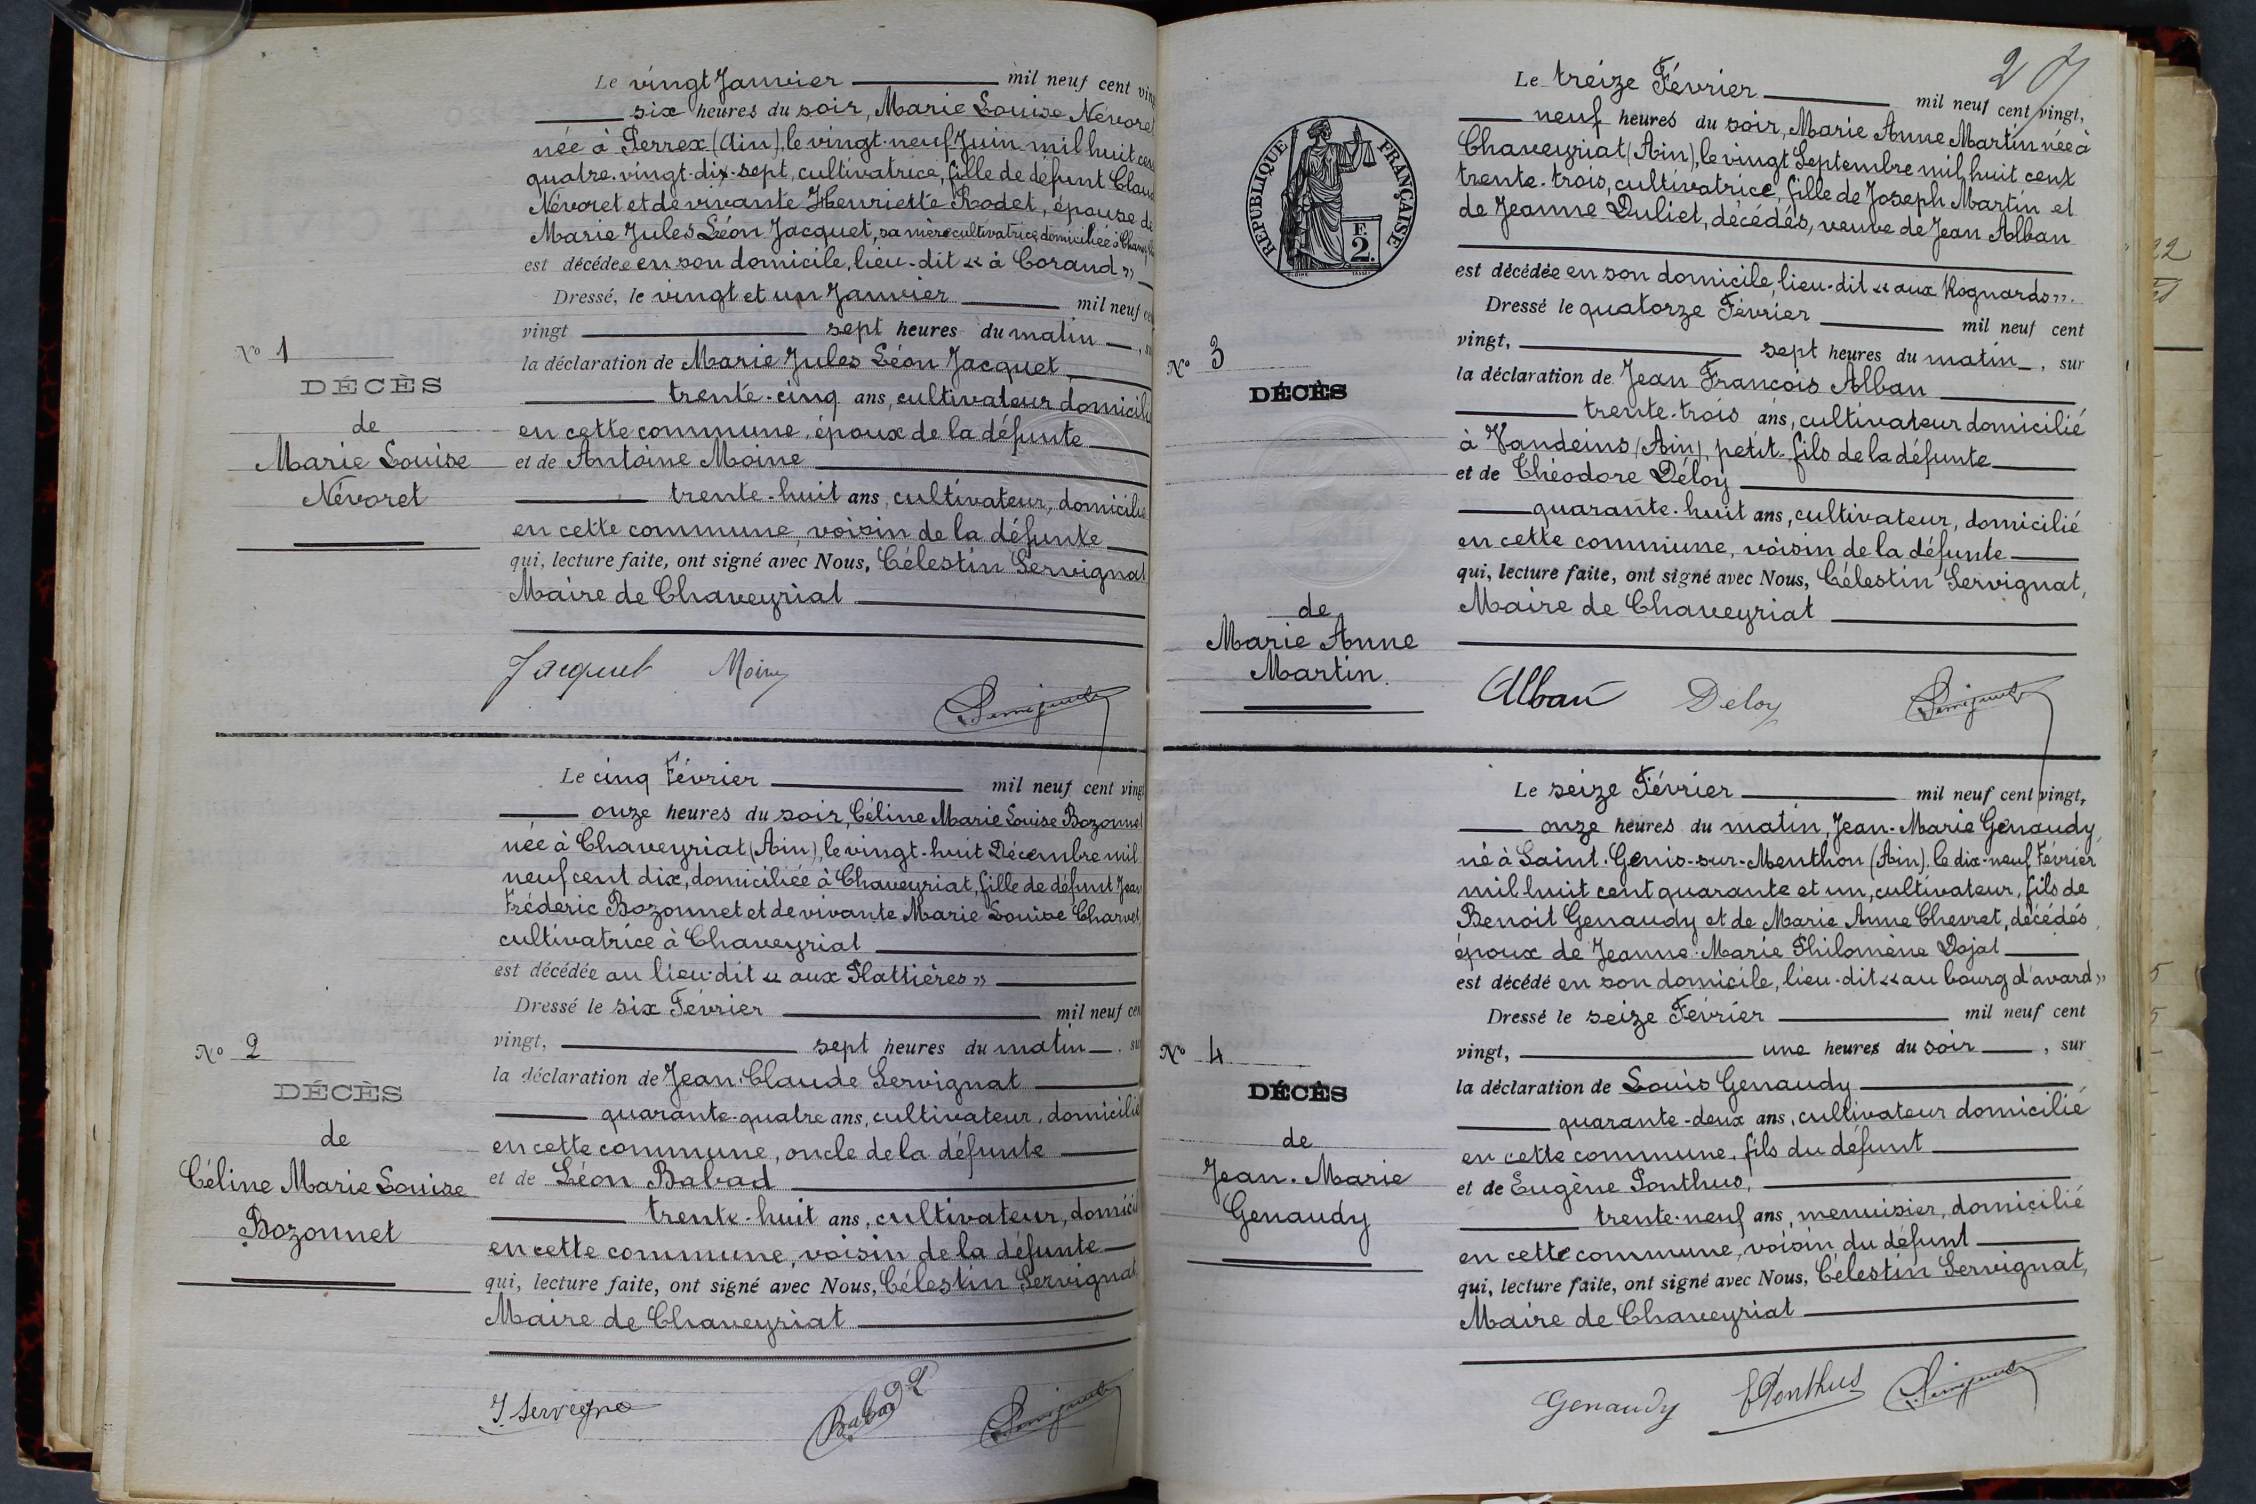 Le vingt Janvier mil neuf cent vingt
six heures du soir, Marie Louise Névoret
née à Perrex (Ain), le vingt-neuf Juin mil huit cent
quatre-vingt-dix-sept, cultivatrice, fille de défunt Claude
Névoret et de vivante Henriette Rodet, épouse de
Marie Jules Léon Jacquet, sa mère cultivatrice domiciliée à
est décédée en son domicile, lieu-dit « à Corand »
Dressé, le vingt et un Janvier mil neuf cent
vingt sept heures du matin, sur
la déclaration de Marie Jules Léon Jacquet
trente-cinq ans, cultivateur domicilié
en cette commune, époux de la défunte
et de Antoine Moine
trente-huit ans, cultivateur, domicilié
en cette commune, voisin de la défunte
qui, lecture faite, ont signé avec Nous, Célestin Servignat
Maire de Chaveyriat
Nº 1
DÉCÈS
de
Marie Louise
Névoret
Jacquet Moine
Le cinq Février mil neuf cent vingt
onze heures du soir, Céline Marie Louise Bozonnet
née à Chaveyriat (Ain), le vingt-huit Décembre mil
neuf cent dix, domiciliée à Chaveyriat, fille de défunt Jean
Fréderic Bozonnet et de vivante Marie Louise Charvet,
cultivatrice à Chaveyriat
est décédée au lieu-dit « aux Plattières »
Dressé le six Février mil neuf cent
vingt, sept heures du matin, sur
la déclaration de Jean-Claude Servignat
quarante-quatre ans, cultivateur, domicilié
en cette commune, oncle de la défunte
et de Léon Babad
trente-huit ans, cultivateur, domicil
en cette commune, voisin de la défunte
qui, lecture faite, ont signé avec Nous, Célestin Servignat
Maire de Chaveyriat
Nº 2
DÉCÈS
de
Céline Marie Louise
Bozonnet
J. Servigna Babad
Le treize Février mil neuf cent vingt,
neuf heures du soir, Marie Anne Martin née à
Chaveyriat (Ain), le vingt Septembre mil huit cent
trente-trois, cultivatrice, fille de Joseph Martin et
de Jeanne Duliet, décédés, veuve de Jean Alban
est décédée en son domicile, lieu-dit « aux Rognards ».
Dressé le quatorze Février mil neuf cent
vingt, sept heures du matin, sur
la déclaration de Jean François Alban
trente-trois ans, cultivateur domicilié
à Vandeins (Ain), petit-fils de la défunte
et de Théodore Déloy
quarante-huit ans, cultivateur, domicilié
en cette commune, voisin de la défunte
qui, lecture faite, ont signé avec Nous, Célestin Servignat,
Maire de Chaveyriat
RÉPUBLIQUE FRANÇAISE
F.
2.
Nº 3
DÉCÈS
de
Marie Anne
Martin.
Alban Deloy
Le seize Février mil neuf cent vingt,
onze heures du matin, Jean-Marie Genaudy,
né à Saint-Genis-sur-Menthon (Ain), le dix-neuf Février
mil huit cent quarante et un, cultivateur, fils de
Benoit Genaudy et de Marie Anne Chevret, décédés,
époux de Jeanne-Marie Philomène Dojat
est décédé en son domicile, lieu-dit « au bourg d'avard »
Dressé le seize Février mil neuf cent
vingt, une heures du soir, sur
la déclaration de Louis Genaudy
quarante-deux ans, cultivateur domicilié
en cette commune, fils du défunt
et de Eugène Ponthus,
trente-neuf ans, menuisier, domicilié
en cette commune, voisin du défunt
qui, lecture faite, ont signé avec Nous, Célestin Servignat,
Maire de Chaveyriat
Nº 4
DÉCÈS
de
Jean-Marie
Genaudy
Genaudy E Ponthus